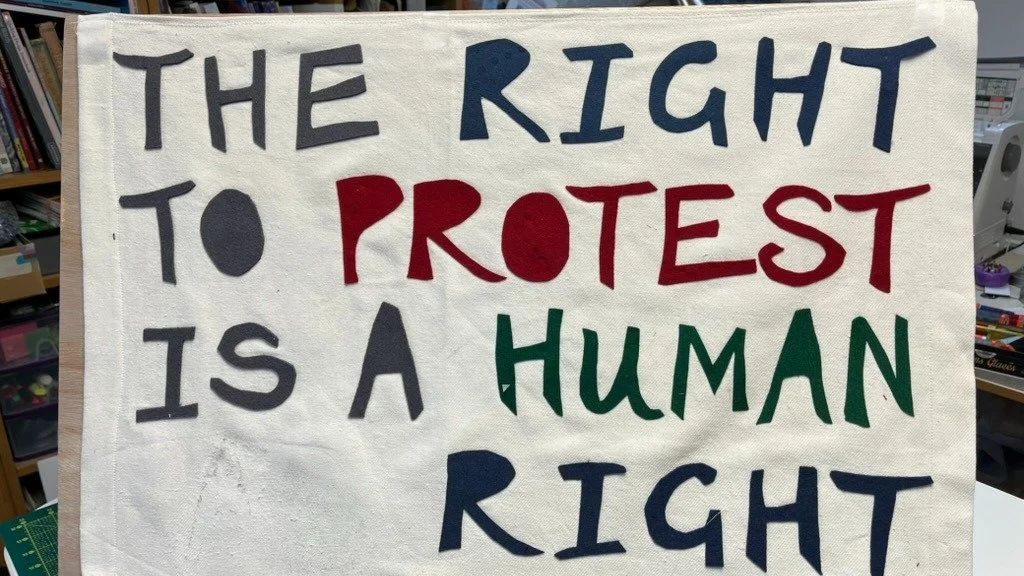 THE RIGHT
TO PROTEST
IS A HUMAN
RIGHT